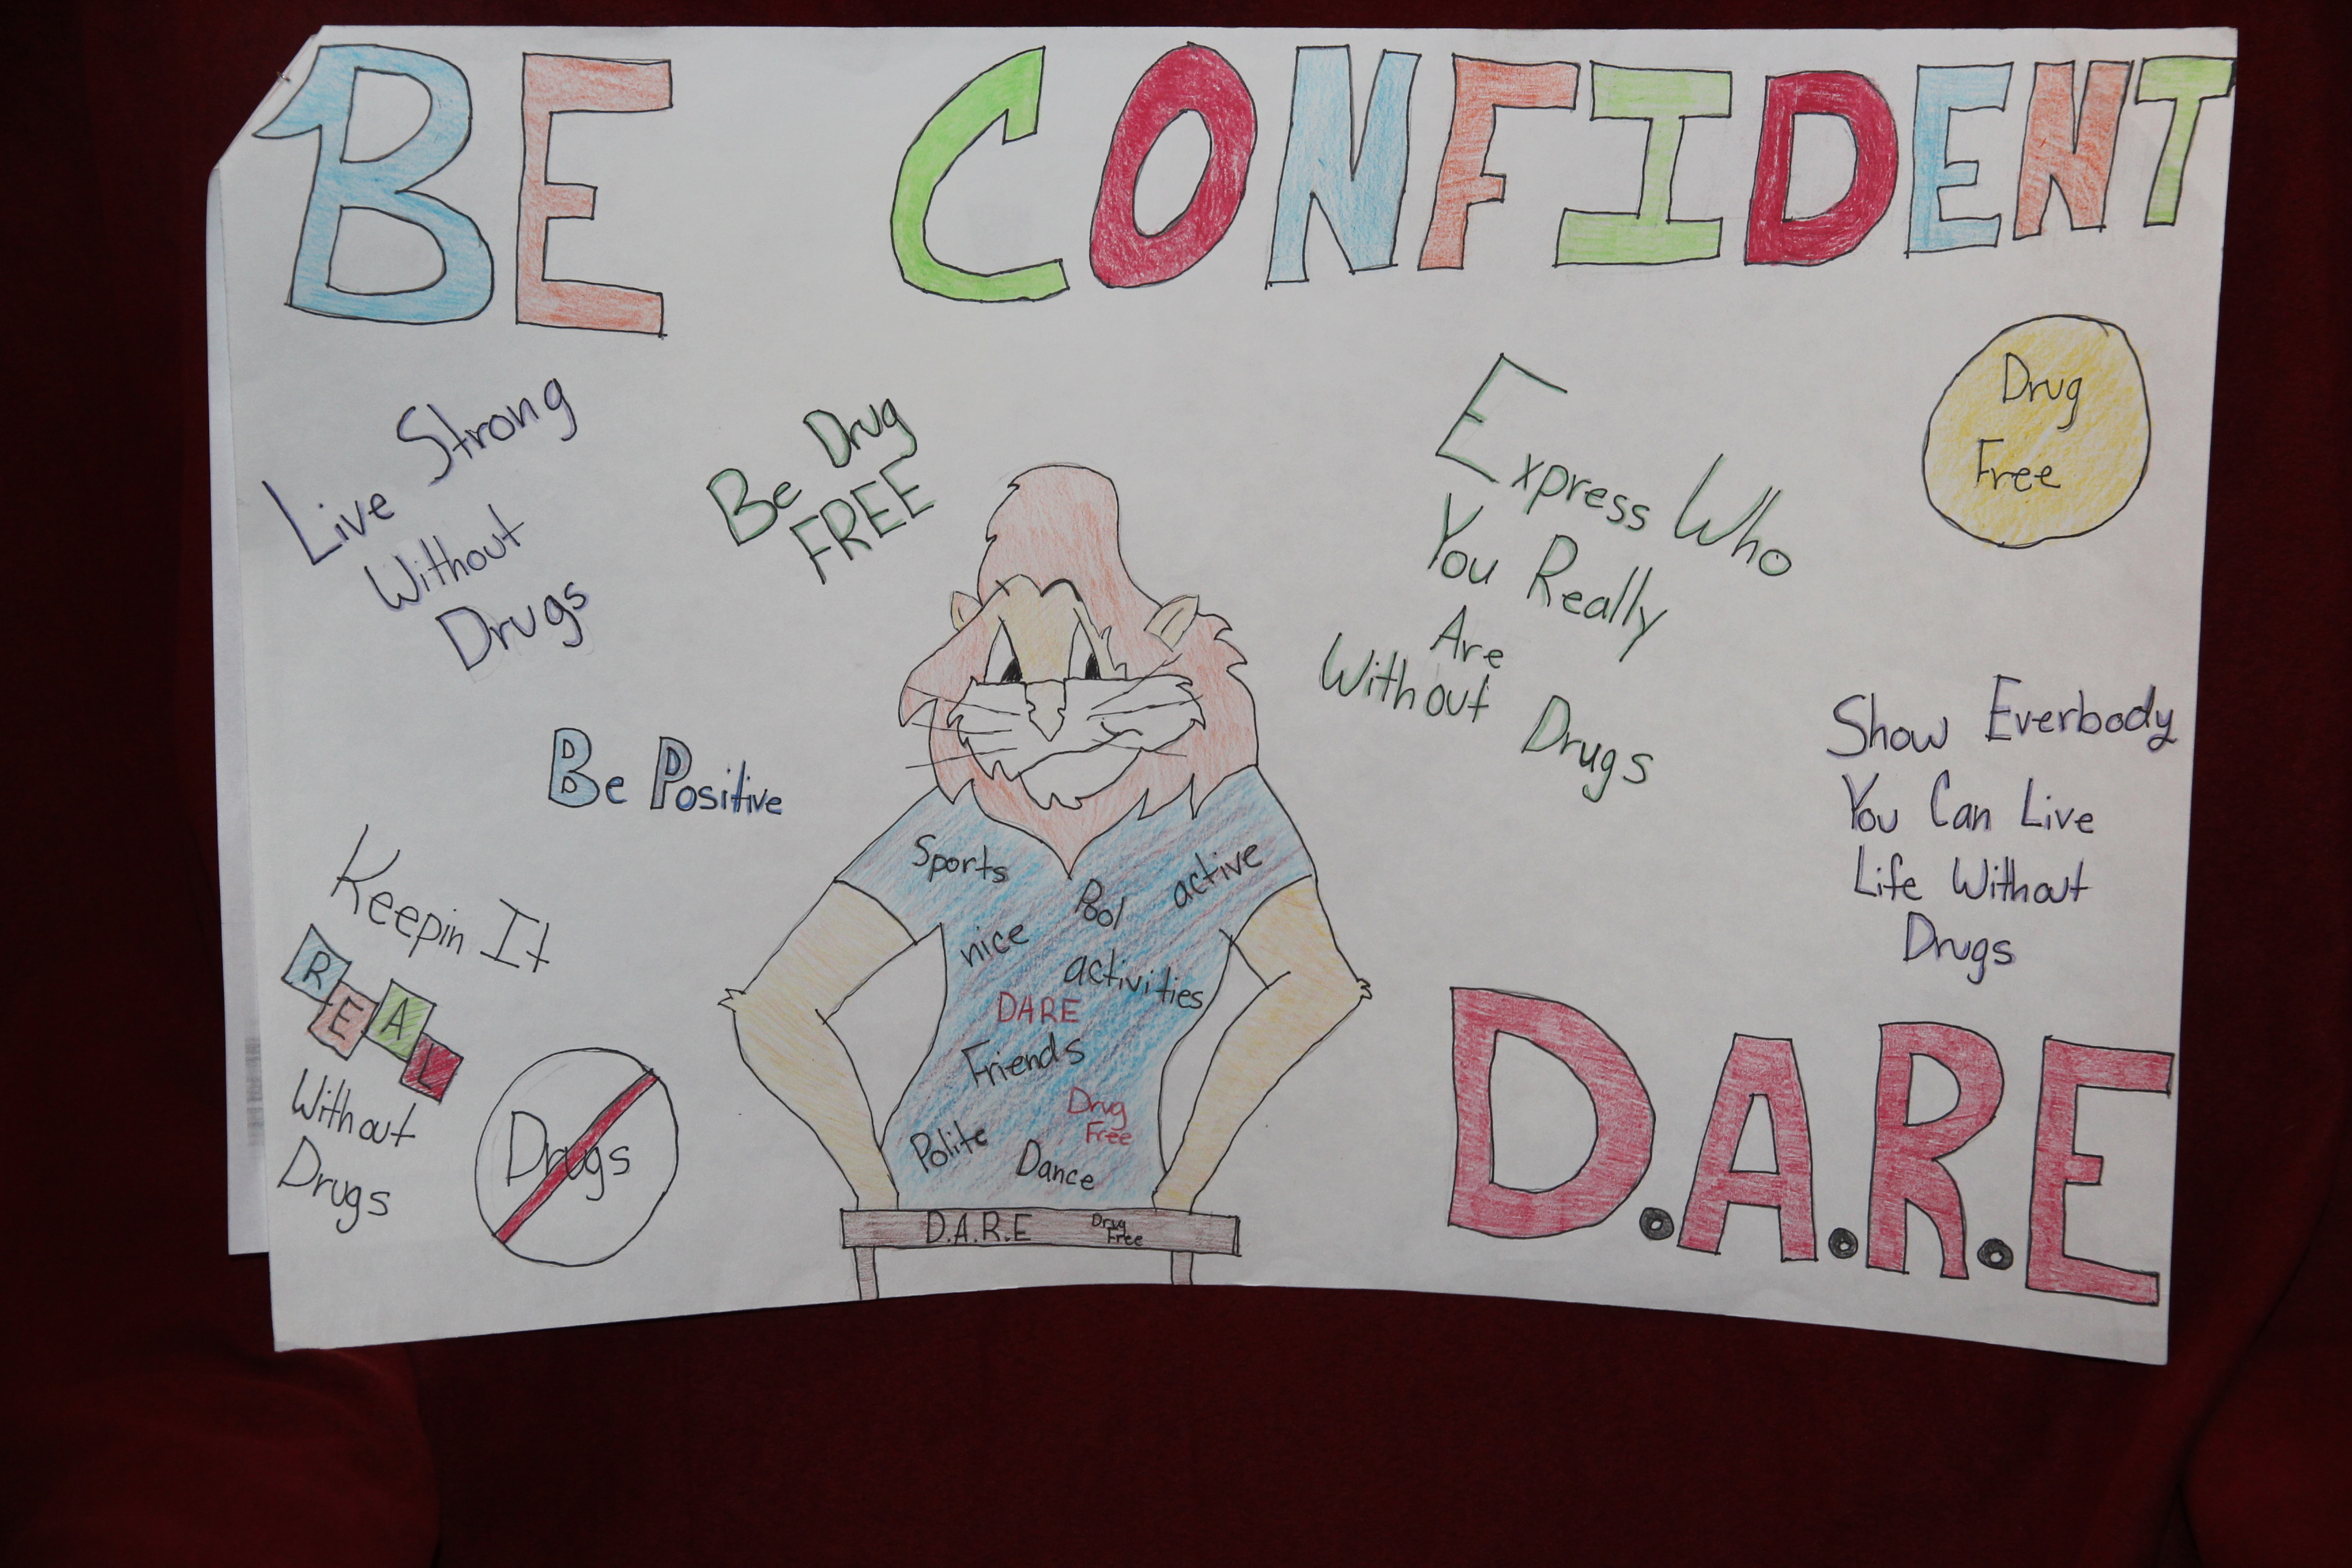 BE CONFIDENT
Live Strong
Without
Drugs
Be Drug
FREE
Express Who
You Really
Are
Without Drugs
Drug
Free
Be Positive
Show Everbody
You Can Live
Life Without
Drugs
Keepin It
REAL
Without
Drugs
Drugs
Sports
Pool
active
nice
activities
DARE
Friends
Drug
Free
Polite
Dance
D.A.R.E
Drug
Free
D.A.R.E